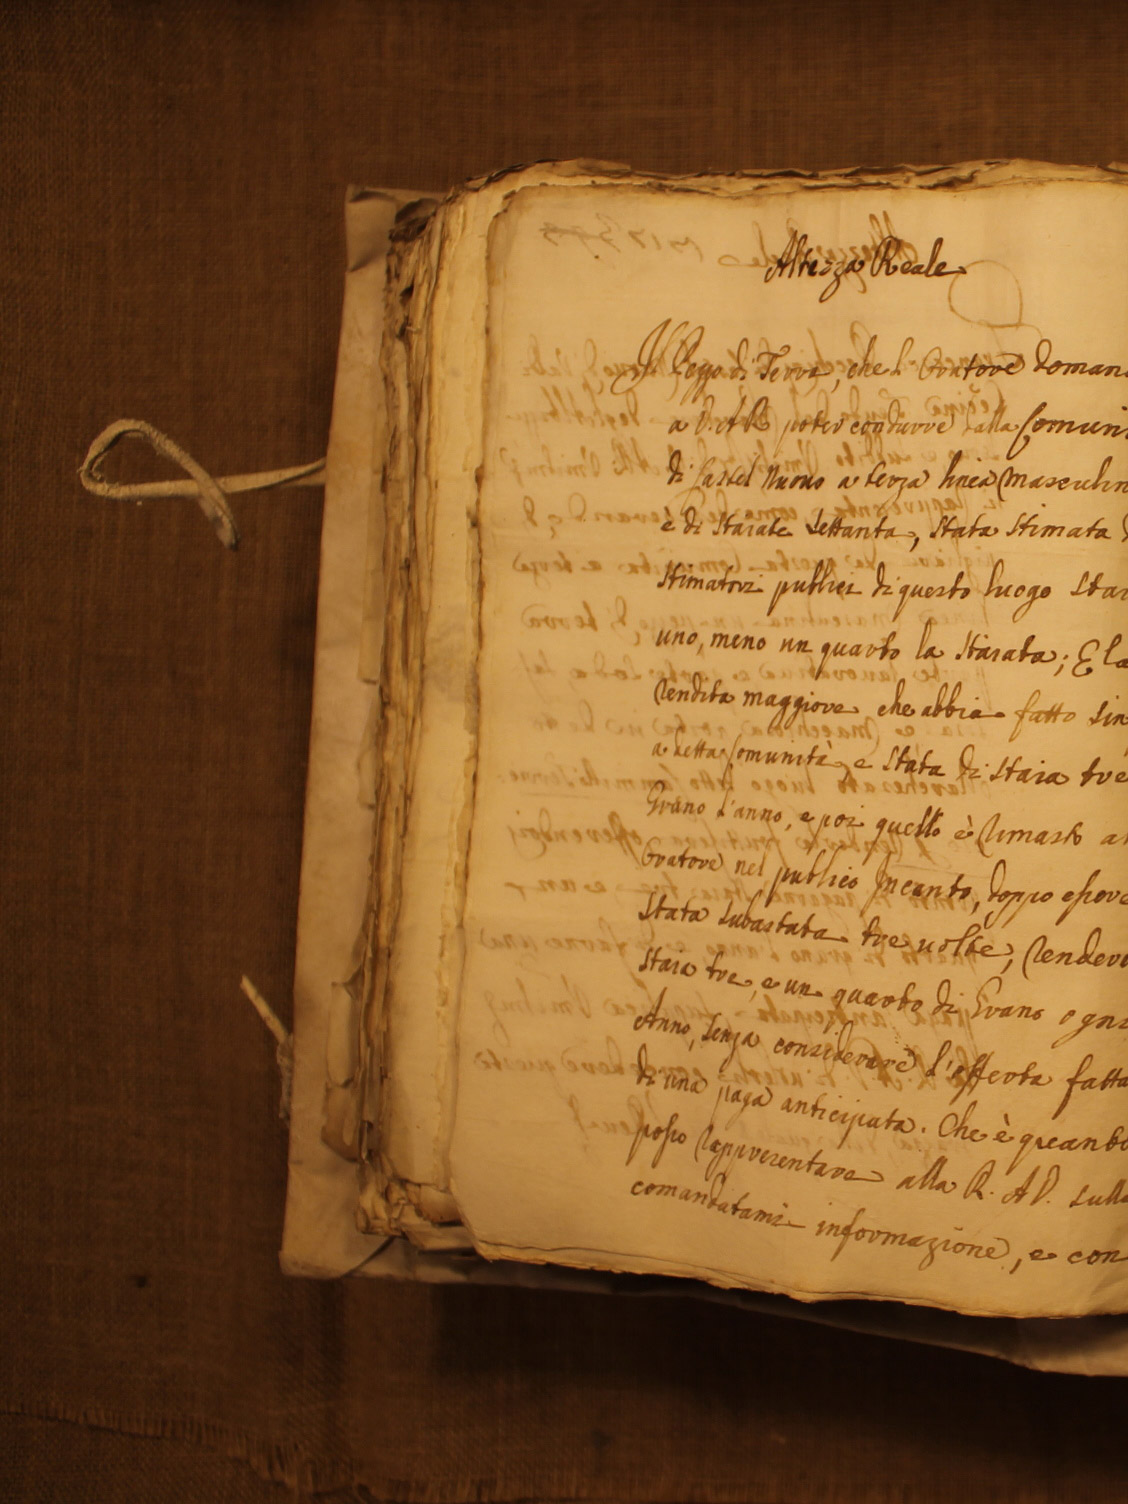 Altezza Reale
Il Pezzo di Terra, che l'Oratore doman
a V. A. R. poter condurre dalla Comuni
di Castel Nuovo a terza linea masculin
e di Staiate Settanta, Stata Stimata d
Stimatori publici di questo luogo Stai
uno, meno un quarto la Staiata; E la
rendita maggiore che abbia fatto Sin
a detta Comunità, e Stata di Staia tre
Grano l'anno, e poi quello è rimasto al
Oratore nel publico Incanto, doppo essere
Stata Subastata tre volte, rendere
Staia tre, e un quarto di Grano ogni
Anno, Senza considerare l'offerta fatta
di una paga anticipata. Che è quanto
posso rappresentare alla R. A. V. Sulla
comandatami informazione, e con